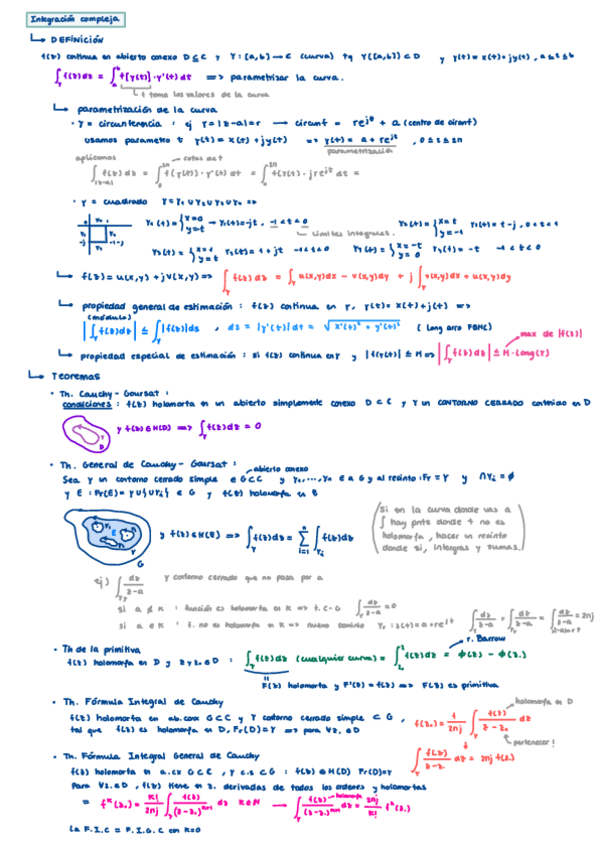 Integración compleja
↳ DEFINICIÓN
f(z) continua en abierto conexo D ⊆ C y γ: [a,b] → C (curva) tq γ([a,b]) ⊂ D y γ(t) = x(t) + jy(t), a ≤ t ≤ b
∫_γ f(z)dz = ∫_a^b f[γ(t)]·γ'(t) dt => parametrizar la curva.
f toma los valores de la curva
↳ parametrización de la curva
· γ = circunferencia : ej γ = |z-a| = r → circunf = re^{jθ} + a (centro de circunf)
usamos parametro t γ(t) = x(t) + jy(t) => γ(t) = a + re^{jt} , 0 ≤ t ≤ 2π
parametrización
aplicamos
cotas de t
∫_{|z-a|} f(z)dz = ∫_0^{2π} f(γ(t))·γ'(t) dt = ∫_0^{2π} f(γ(t)·jre^{jt} dt =
· γ = cuadrado γ = γ₁ ∪ γ₂ ∪ γ₃ ∪ γ₄ =>
γ₁(t) = {x=0 y=t → γ₁(t) = -jt, -1 < t < 0
γ₂(t) = {x=t y=-1 γ₂(t) = t-j, 0 < t < 1
Límites integrales.
γ₃(t) = {x=1 y=t γ₃(t) = 1+jt -1 < t < 0
γ₄(t) = {x=-t y=0 γ₄(t) = -t -1 < t < 0
↳ f(z) = u(x,y) + jv(x,y) => ∫_γ f(z)dz = ∫_γ u(x,y)dx - v(x,y)dy + j∫_γ v(x,y)dx + u(x,y)dy
↳ propiedad general de estimación : f(z) continua en γ, γ(t) = x(t) + j(t) =>
(módulo)
|∫_γ f(z)dz| ≤ ∫_γ |f(z)|ds , ds = |γ'(t)|dt = √x'(t)² + y'(t)² (long arco FBMC)
max de |f(z)|
↳ propiedad especial de estimación : si f(z) continua en γ y |f(γ(t))| ≤ M => |∫_γ f(z)dz| ≤ M·Long(γ)
↳ Teoremas
· Th. Cauchy-Goursat :
condiciones : f(z) holomorfa en un abierto simplemente conexo D ⊂ C y γ un CONTORNO CERRADO contenido en D
γ
D
y f(z) ∈ H(D) => ∫_γ f(z)dz = 0
· Th. General de Cauchy-Goursat :
abierto conexo
Sea γ un contorno cerrado simple ∈ G ⊂ C y γ₁,...,γₙ ∈ a G y al recinto : Fr = γ y ∩γᵢ = ∅
y E : Fr(E) = γ ∪ {∪γᵢ} ∈ G y f(z) holomorfa en E
E
γ
G
y f(z) ∈ H(E) => ∫_γ f(z)dz = Σ_{i=1}^n ∫_{γᵢ} f(z)dz
(si en la curva donde vas a
∫ hay pnto donde f no es
holomorfa, hacer un recinto
donde si, integras y sumas.)
ej) ∫_γ dz/z-a γ contorno cerrado que no pasa por a
si a ∉ K : función es holomorfa en K => t. C-G ∫_γ dz/z-a = 0
si a ∈ K : f. no es holomorfa en K => nuevo γᵣ : γ(t) = a + re^{jt} ∫_γ dz/z-a = ∫_{γᵣ} dz/z-a = ∫_{|z-a|=r} dz/z-a = 2πj
r. Barrow
· Th de la primitiva
f(z) holomorfa en D y z y z₀ ∈ D : ∫_γ f(z)dz (cualquier curva) = ∫_{z₀}^z f(z)dz = Φ(z) - Φ(z₀)
F(z) holomorfa y F'(z) = f(z) => F(z) es primitiva
· Th. Fórmula Integral de Cauchy
holomorfa en D
f(z) holomorfa en ab. conx G ⊂ C y γ contorno cerrado simple ⊂ G , f(z₀) = 1/2πj ∫_γ f(z)/z-z₀ dz
tal que f(z) es holomorfa en D, Fr(D) = γ => para ∀z₀ ∈ D
pertenecer!
∫_γ f(z)/z-z₀ dz = 2πj f(z₀)
· Th. Fórmula Integral General de Cauchy
f(z) holomorfa en a.cx G ⊂ C , γ c.s ⊂ G : f(z) ∈ H(D) Fr(D) = γ
Para ∀z₀ ∈ D , f(z) tiene en z₀ derivadas de todos los ordenes y holomorfas
= f^k(z₀) = k!/2πj ∫_γ f(z)/(z-z₀)^{k+1} dz k ∈ N → ∫_γ f(z)/(z-z₀)^{k+1} dz = 2πj/k! f^k(z₀)
holomorfa
La F.I.C = F.I.G.C con k=0